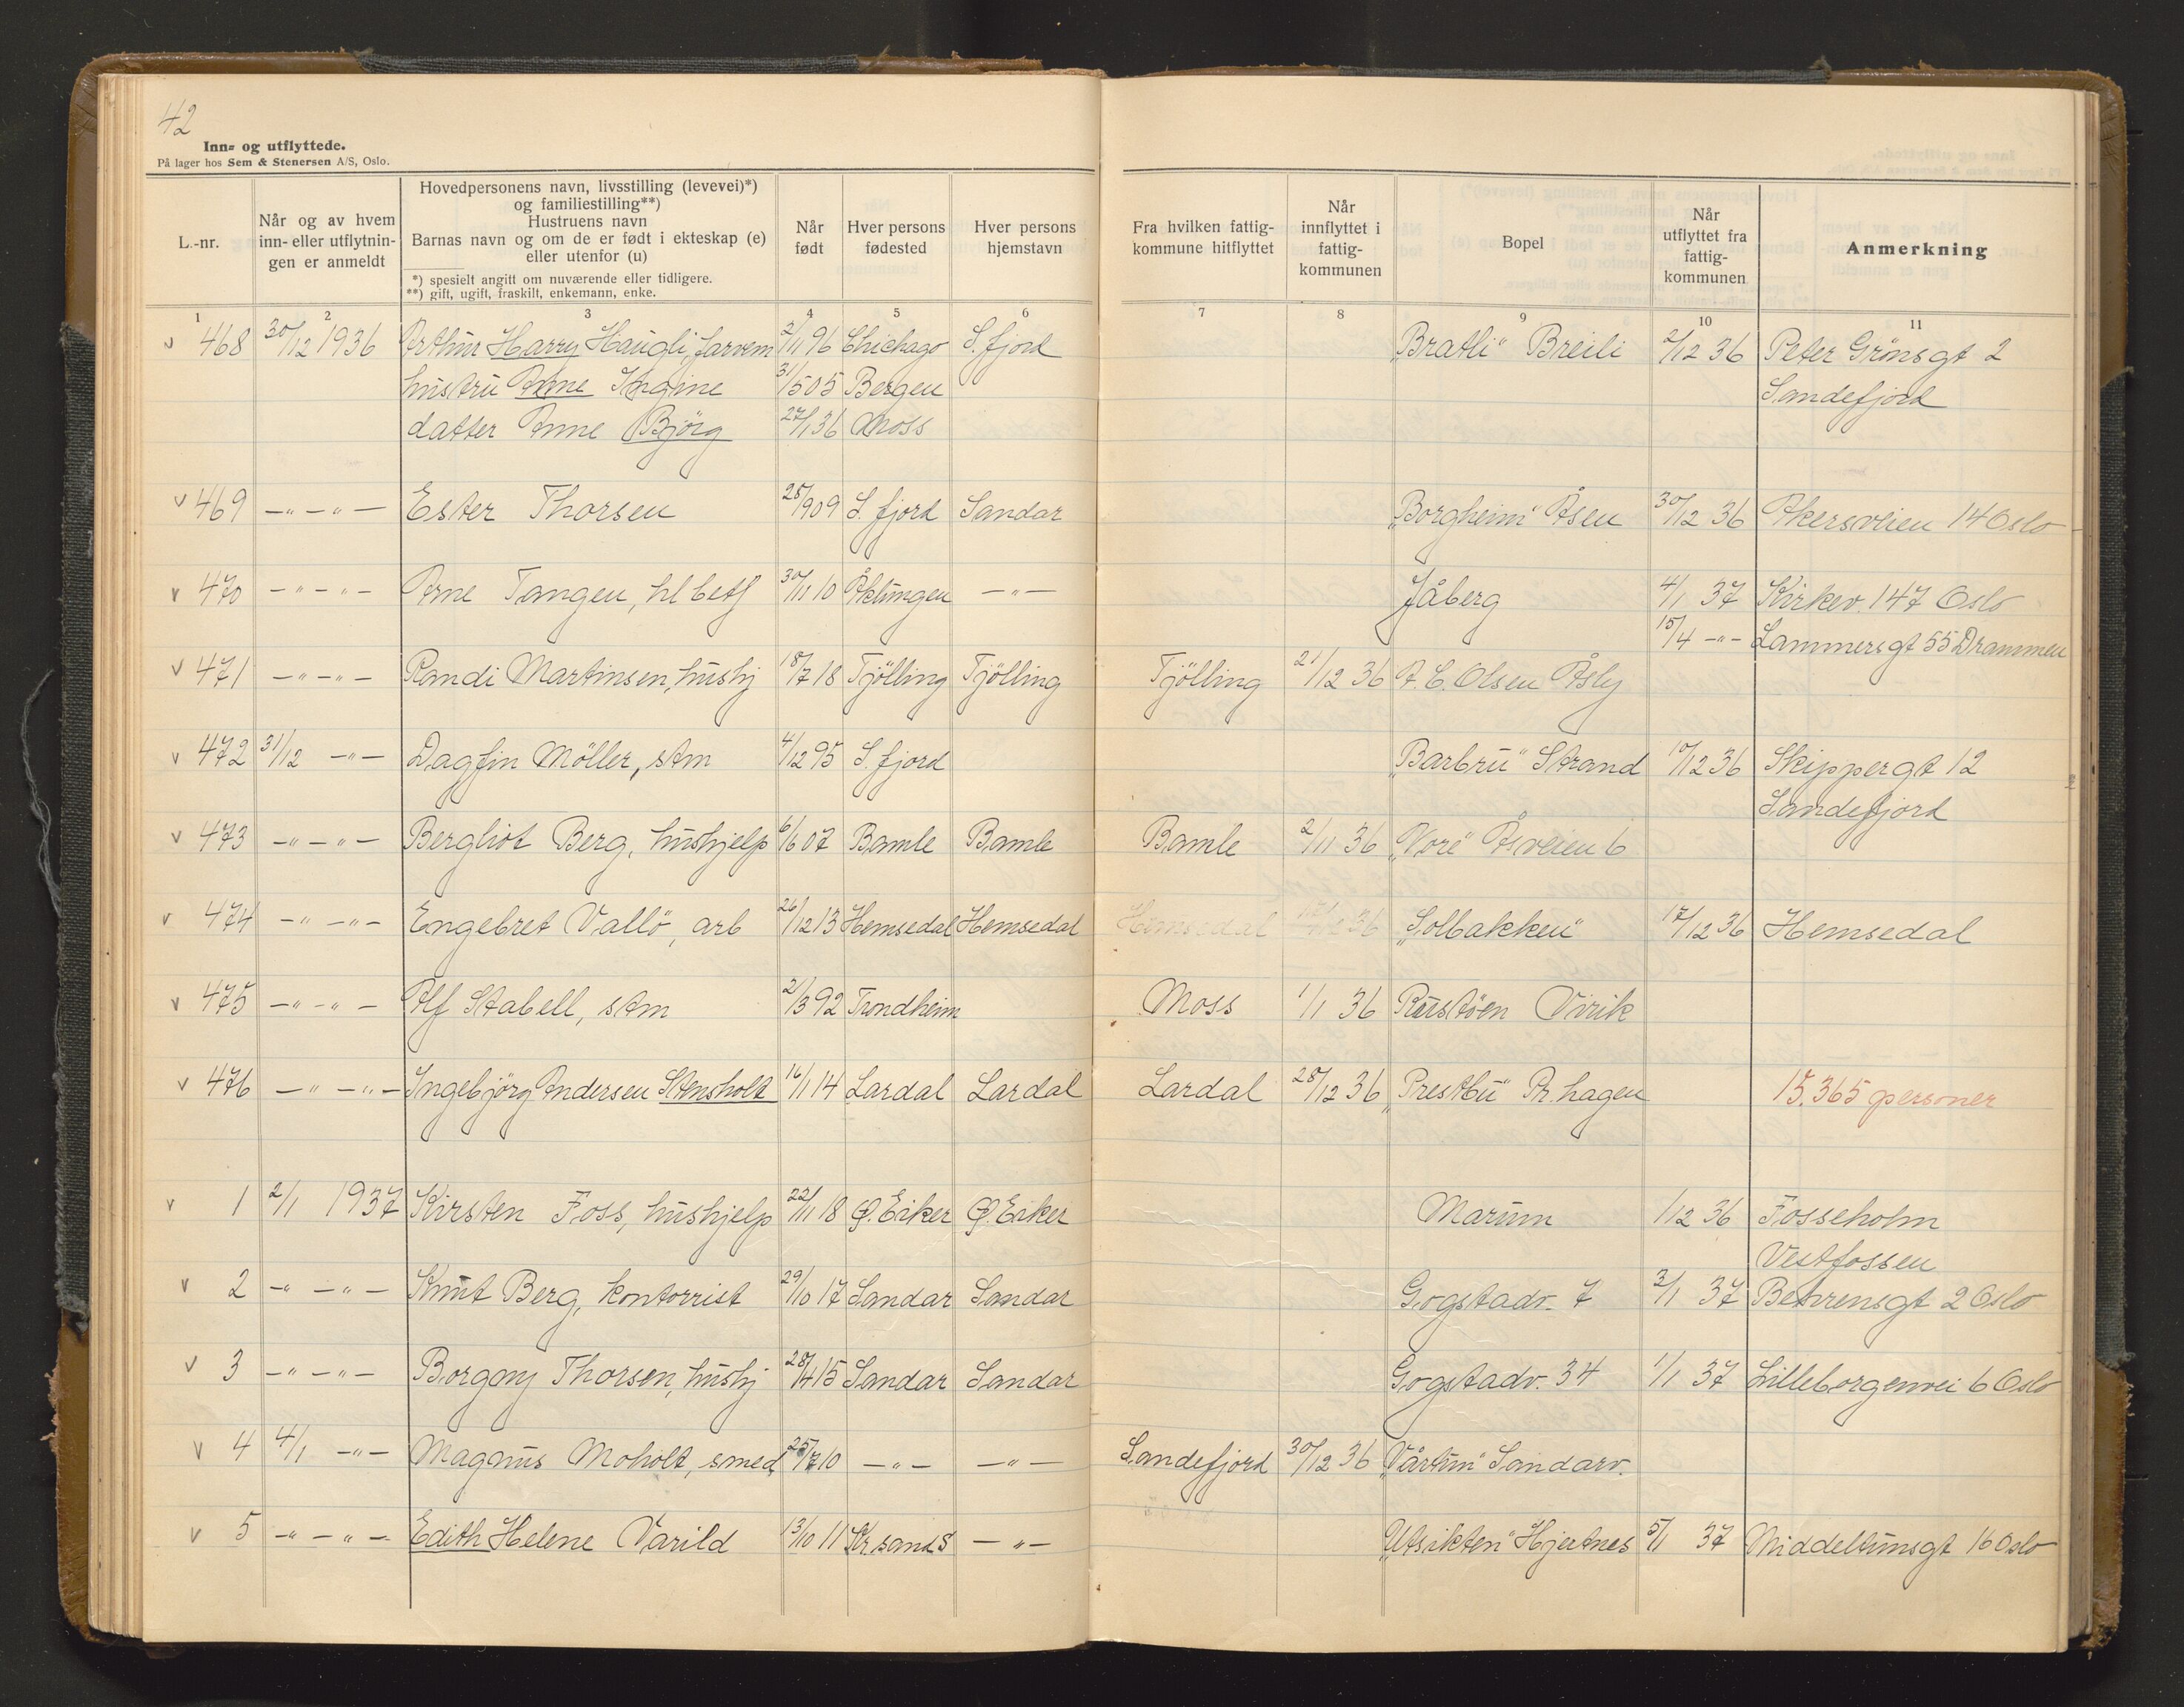 42
Inn- og utflyttede.
På lager hos Sem & Stenersen A/S, Oslo.
L.-nr.
Når og av hvem inn- eller utflytnin-gen er anmeldt
Hovedpersonens navn, livsstilling (levevei)*) og familiestilling**)
Hustruens navn
Barnas navn og om de er født i ekteskap (e) eller utenfor (u)
*) spesielt angitt om nuværende eller tidligere.
**) gift, ugift, fraskilt, enkemann, enke.
Når født
Hver persons fødested
Hver persons hjemstavn
Fra hvilken fattig-kommune hitflyttet
Når innflyttet i fattig-kommunen
Bopel
Når utflyttet fra fattig-kommunen
Anmerkning
1 2 3 4 5 6 7 8 9 10 11
v 468 30/12 1936 Arthur Harry Haugli, farvem 2/11 96 Chichago S.fjord "Bratli" Breili 2/12 36 Peter Grönsgt 2
hustru Anne Ingine 31/5 05 Bergen Sandefjord
datter Anne Björg 27/1 36 Moss
v 469 -"-"- Ester Thorsen 25/9 09 S.fjord Sandar "Borgheim" Åsen 30/12 36 Akersveien 14 Oslo
v 470 -"-"- Arne Tangen, hl betj 30/11 10 Åklungen -"- Jåberg 4/1 37 Kirkev. 147 Oslo
15/4 -"- Lammersgt 55 Drammen
v 471 -"-"- Randi Martinsen, hushj 18/7 18 Tjölling Tjölling Tjölling 21/12 36 A.C. Olsen Åsly
v 472 31/12 -"- Dagfin Möller, stm 4/12 95 S.fjord "Barbru" Strand 10/12 36 Skippergt 12
Sandefjord
v 473 -"-"- Bergliot Berg, hushjelp 6/6 07 Bamle Bamle Bamle 2/11 36 "Vore" Åsveien 6
v 474 -"-"- Engebret Vallö, arb 26/12 13 Hemsedal Hemsedal Hemsedal 17/12 36 "Solbakken" 17/12 36 Hemsedal
v 475 -"-"- Alf Stabell, stm 2/3 92 Trondheim Moss 1/1 36 Rustöen Virik
v 476 -"-"- Ingebjörg Andersen Stensholt 16/1 14 Lardal Lardal Lardal 28/12 36 "Prestbu" Pr.hagen 15.365 personer
v 1 2/1 1937 Kirsten Foss, hushjelp 22/11 18 Ø.Eiker Ø.Eiker Marum /12 36 Fosseholm
Vestfossen
v 2 -"-"- Knut Berg, kontorrist 29/10 17 Sandar Sandar Gogstadv. 7 2/1 37 Behrensgt 2 Oslo
v 3 -"-"- Borgny Thorsen, hushj 28/4 15 Sandar Sandar Gogstadv. 34 1/1 37 Lilleborgenvei 6 Oslo
v 4 4/1 -"- Magnus Moholt, smed 25/7 10 -"- -"- Sandefjord 30/12 36 "Vårtun" Sandarv.
v 5 -"-"- Edith Helene Varild 13/10 11 Kr.sand S -"- "Utsikten" Hjertnes 5/1 37 Middeltunsgt 16 Oslo